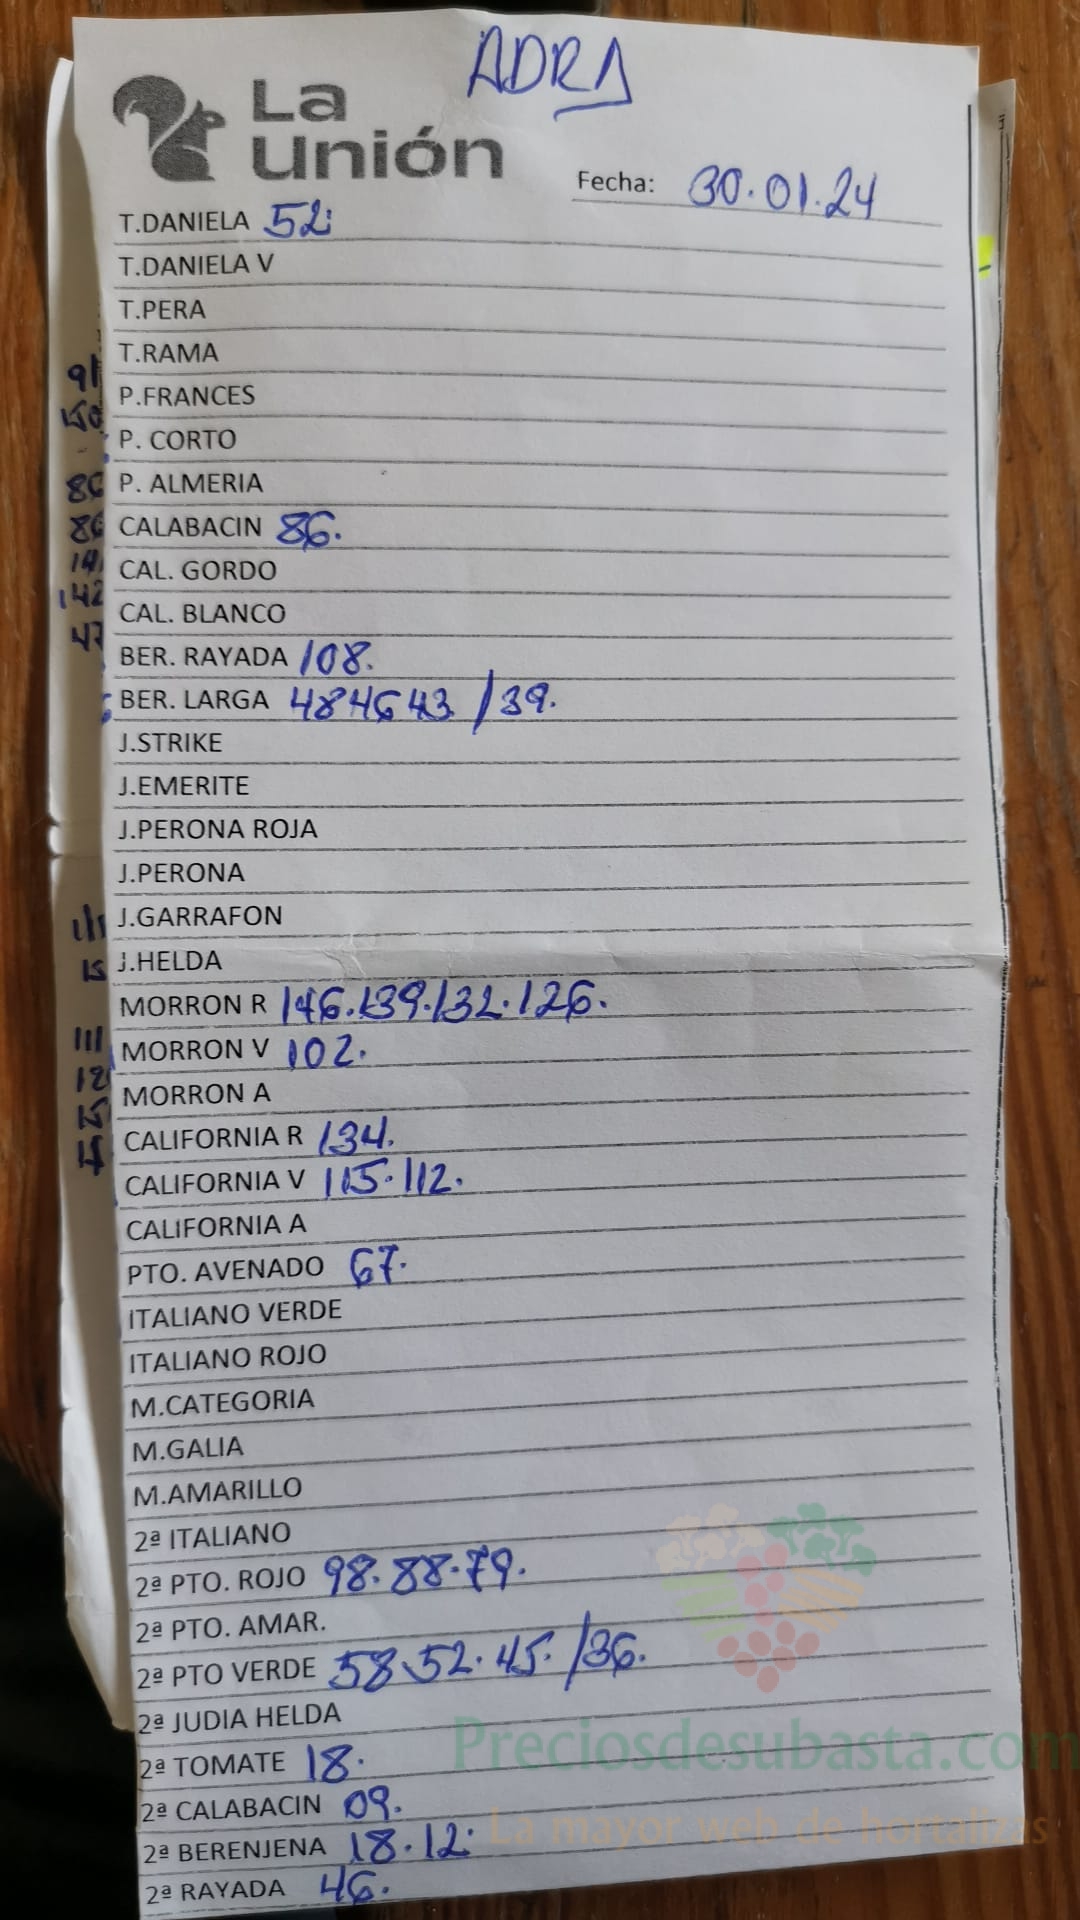 ADRA
La
unión
Fecha: 30.01.24
T.DANIELA 52.
T.DANIELA V
T.PERA
T.RAMA
P.FRANCES
P. CORTO
P. ALMERIA
CALABACIN 86.
CAL. GORDO
CAL. BLANCO
BER. RAYADA 108.
BER. LARGA 48 46 43 / 39.
J.STRIKE
J.EMERITE
J.PERONA ROJA
J.PERONA
J.GARRAFON
J.HELDA
MORRON R 146.139.132.126.
MORRON V 102.
MORRON A
CALIFORNIA R 134.
CALIFORNIA V 115.112.
CALIFORNIA A
PTO. AVENADO 67.
ITALIANO VERDE
ITALIANO ROJO
M.CATEGORIA
M.GALIA
M.AMARILLO
2ª ITALIANO
2ª PTO. ROJO 98.88.79.
2ª PTO. AMAR.
2ª PTO VERDE 58.52.45./36.
2ª JUDIA HELDA
2ª TOMATE 18.
2ª CALABACIN 09.
2ª BERENJENA 18.12.
2ª RAYADA 46.
Preciosdesubasta.com
La mayor web de hortalizas